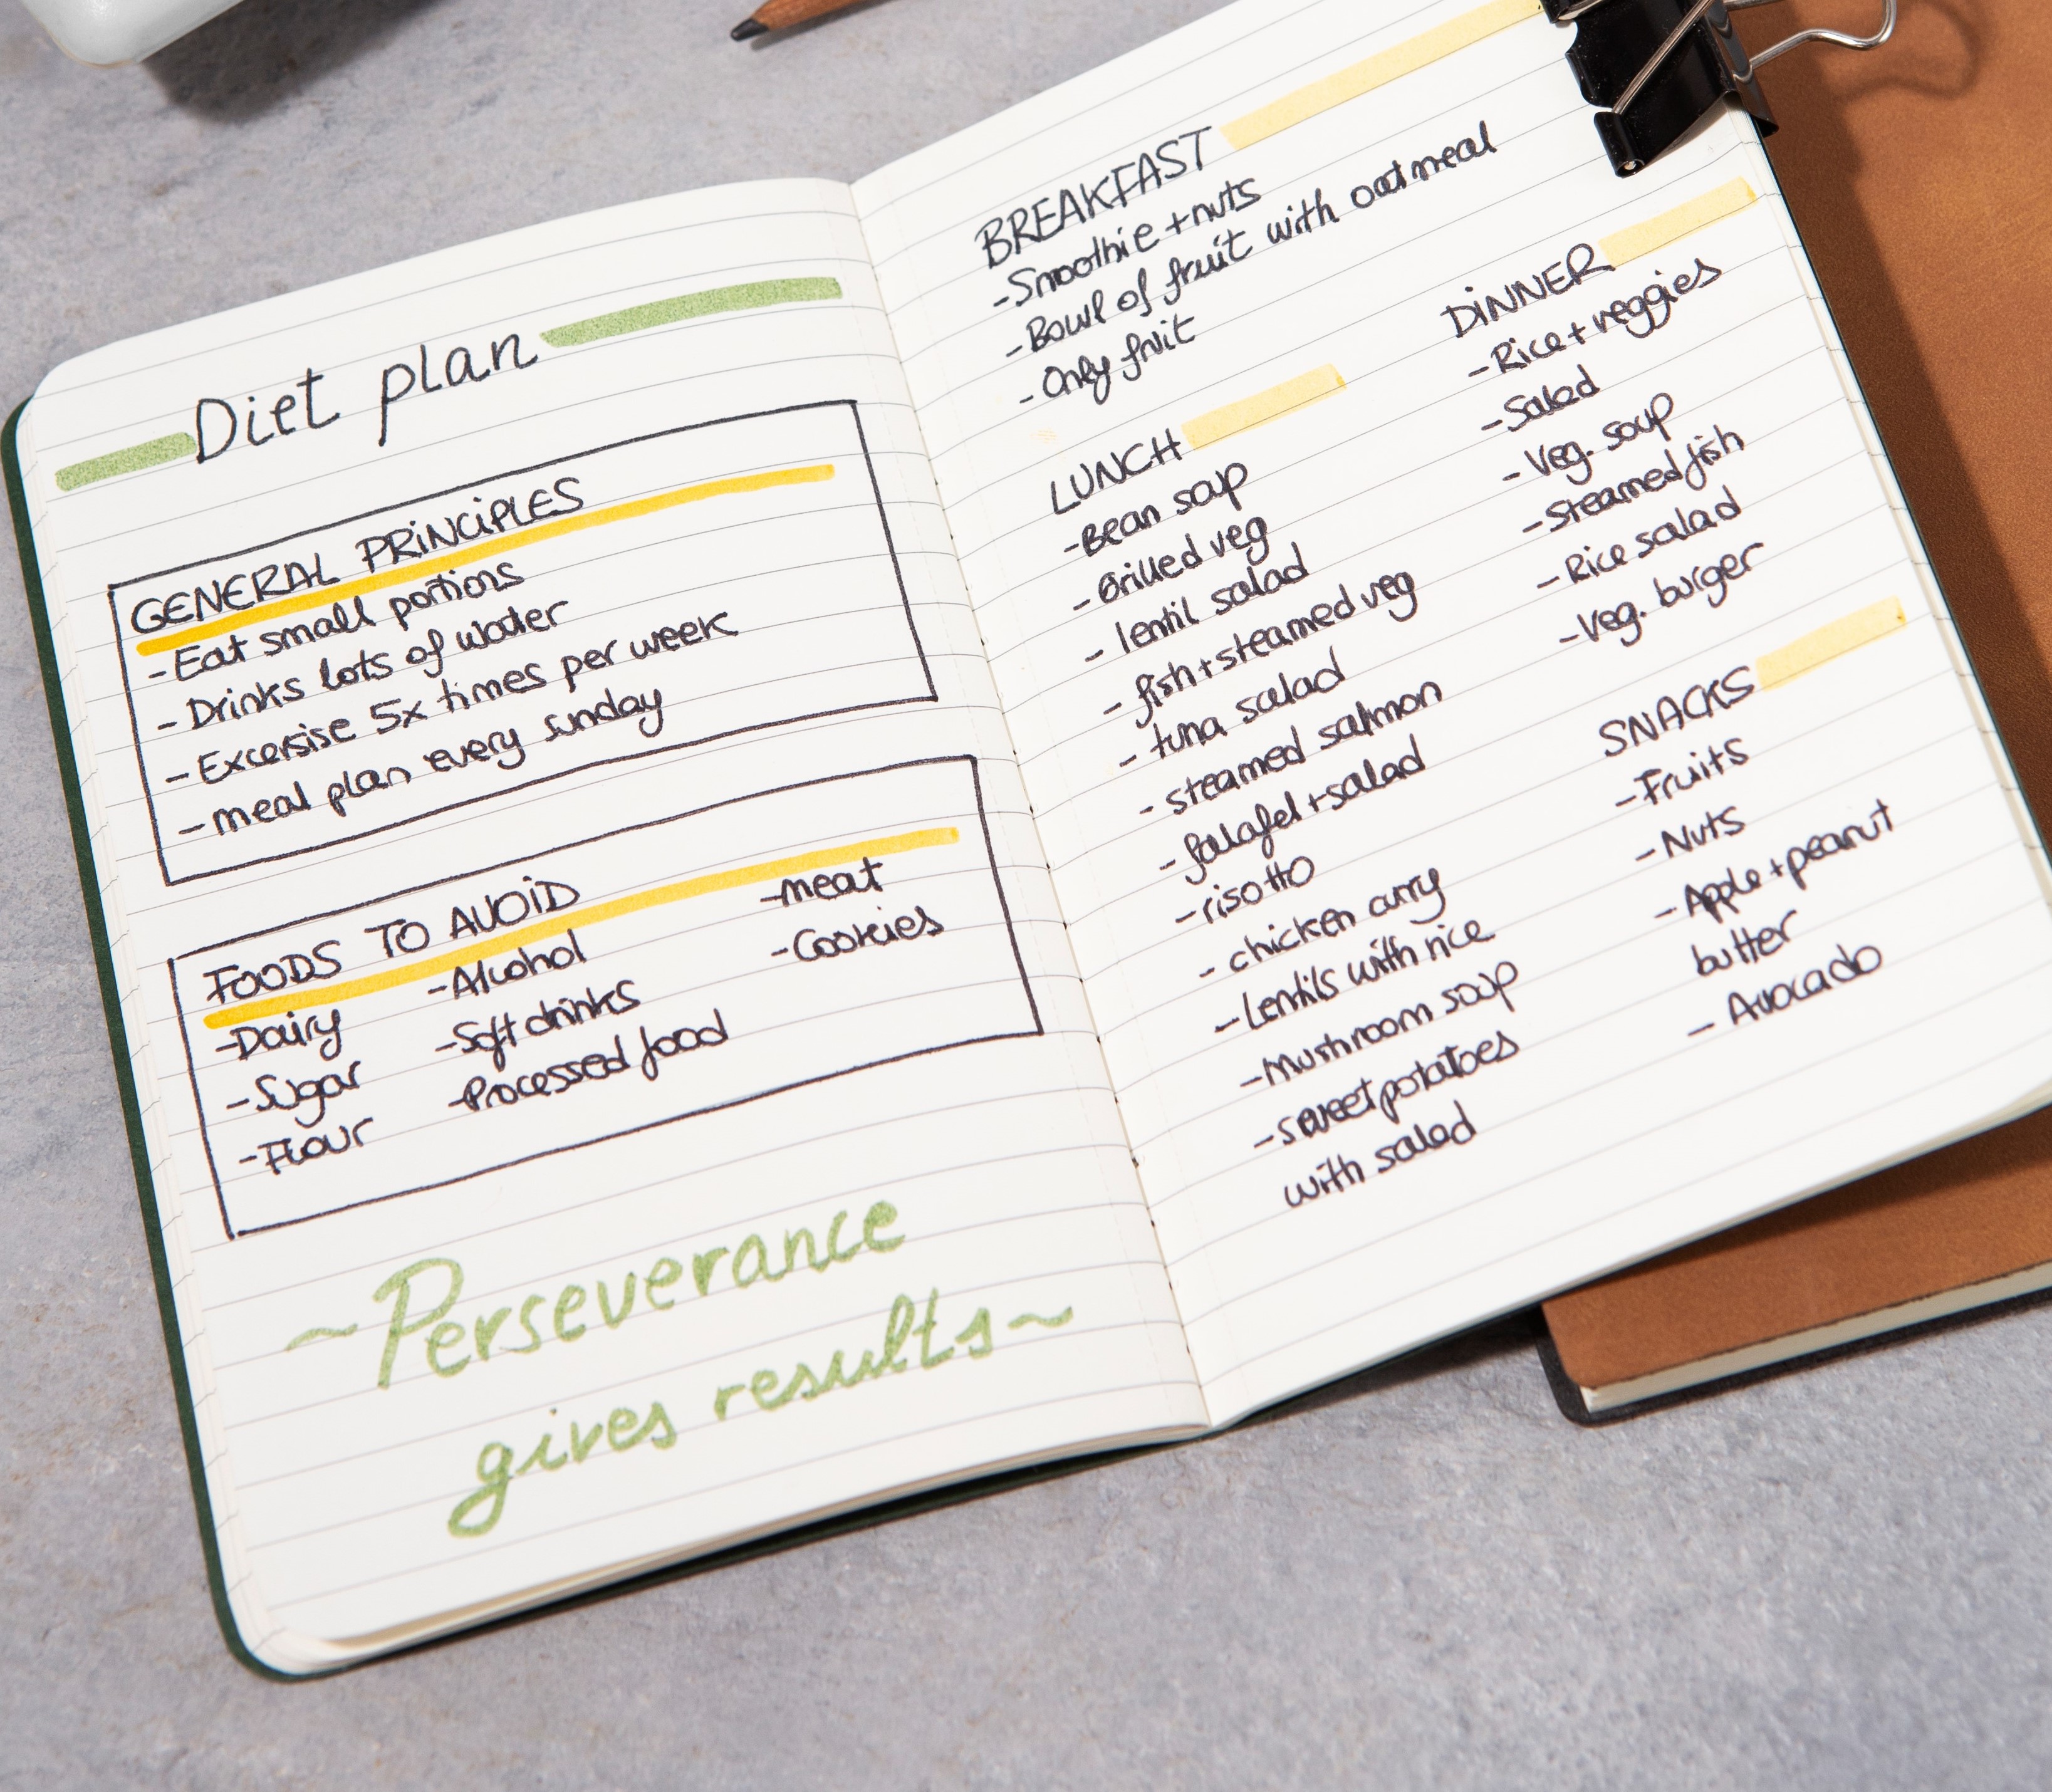 Diet plan
GENERAL PRINCIPLES
-Eat small portions
-Drinks lots of water
-Excersise 5x times per week
-meal plan every sunday
FOODS TO AVOID
-Dairy
-Sugar
-Flour
-Alcohol
-Soft drinks
-Processed food
-meat
-Cookies
~Perseverance
gives results~
BREAKFAST
-Smoothie +nuts
-Bowl of fruit with oatmeal
-Only fruit
LUNCH
-Bean soup
-Grilled veg
-lentil salad
-fish+steamed veg
-tuna salad
-steamed salmon
-falafel+salad
-risotto
-chicken curry
-Lentils with rice
-Mushroom soup
-sweet potatoes
with salad
DINNER
-Rice+veggies
-Salad
-Veg. soup
-Steamed fish
-Rice salad
-Veg. burger
SNACKS
-Fruits
-Nuts
-Apple+peanut
butter
-Avocado